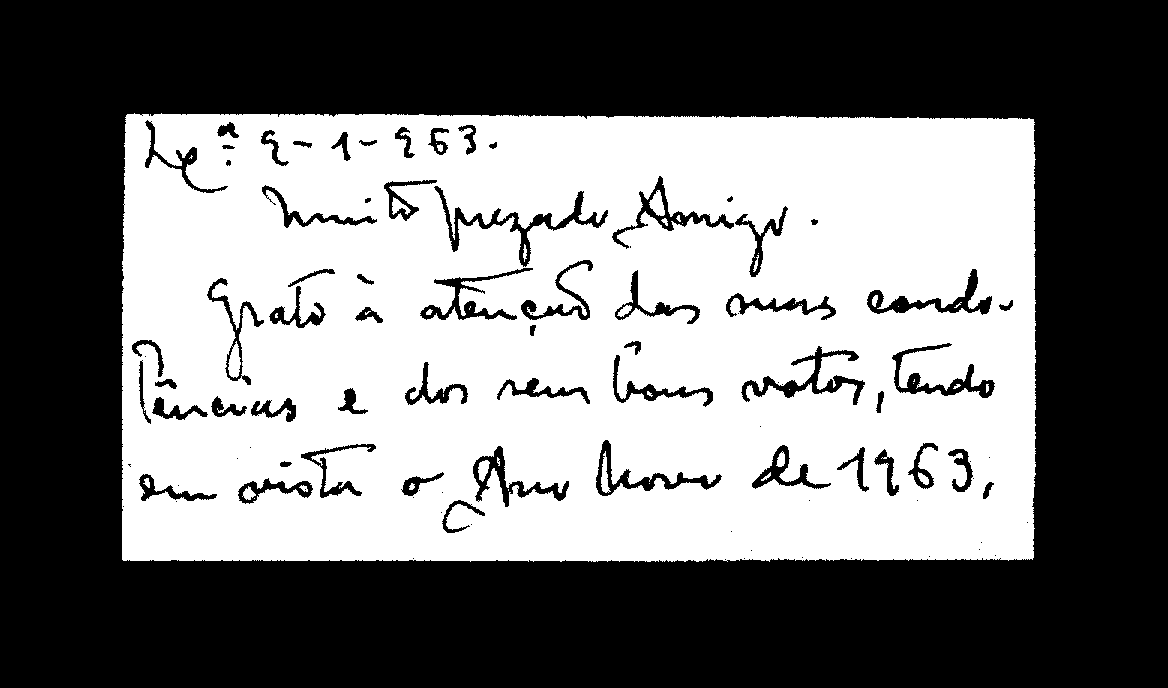 Lxª. 9-1-963.
Muito prezado Amigo.
Grato à atenção das suas condo-
lências e dos seus bons votos, tendo
em vista o Ano Novo de 1963,